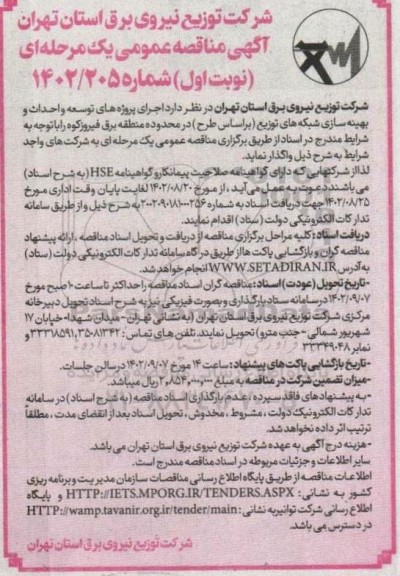 شرکت توزیع نیروی برق استان تهران
آگهی مناقصه عمومی یک مرحله‌ای
(نوبت اول) شماره ۱۴۰۲/۲۰۵
شرکت توزیع نیروی برق استان تهران در نظر دارد اجرای پروژه های توسعه و احداث و
بهینه سازی شبکه های توزیع (بر اساس طرح) در محدوده منطقه برق فیروزکوه را با توجه به
شرایط مندرج در اسناد از طریق برگزاری مناقصه عمومی یک مرحله ای به شرکت های واجد
شرایط به شرح ذیل واگذار نماید.
لذا از شرکتهایی که دارای گواهینامه صلاحیت پیمانکار و گواهینامه HSE (به شرح اسناد)
می باشند دعوت به عمل می آید، از مورخ ۱۴۰۲/۰۸/۲۰ لغایت پایان وقت اداری مورخ
۱۴۰۲/۰۸/۲۵ جهت دریافت اسناد به شماره ۲۰۰۲۰۹۰۱۸۱۰۰۰۲۵۶ به شرح ذیل و از طریق سامانه
تدارکات الکترونیکی دولت (ستاد) اقدام نمایند.
دریافت اسناد: کلیه مراحل برگزاری مناقصه از دریافت و تحویل اسناد مناقصه، ارائه پیشنهاد
مناقصه گران و بازگشایی پاکت ها از طریق درگاه سامانه تدارکات الکترونیکی دولت (ستاد)
به آدرس WWW.SETADIRAN.IR انجام خواهد شد.
-تاریخ تحویل (عودت) اسناد: مناقصه گران اسناد مناقصه را حداکثر تا ساعت ۱۰ صبح مورخ
۱۴۰۲/۰۹/۰۷ در سامانه ستاد بارگذاری و بصورت فیزیکی نیز به شرح اسناد تحویل دبیرخانه
مرکزی شرکت توزیع نیروی برق استان تهران (به نشانی تهران - میدان شهدا - خیابان ۱۷
شهریور شمالی - جنب مترو) تحویل نمایند. تلفن های تماس: ۳۵۰۸۱۳۴۲، ۳۳۳۱۸۵۹۱ و
نمابر ۳۳۳۴۹۰۴۸
-تاریخ بازگشایی پاکت های پیشنهاد: ساعت ۱۴ مورخ ۱۴۰۲/۰۹/۰۷ در سالن جلسات.
-میزان تضمین شرکت در مناقصه به مبلغ ۲،۸۵۴،۰۰۰،۰۰۰ ریال میباشد.
-به پیشنهادهای فاقد سپرده، عدم بارگذاری اسناد مناقصه (به شرح اسناد) در سامانه
تدارکات الکترونیک دولت، مشروط، مخدوش، تحویل اسناد بعد از انقضای مدت، مطلقاً
ترتیب اثر داده نخواهد شد.
-هزینه درج آگهی به عهده شرکت توزیع نیروی برق استان تهران می باشد.
سایر اطلاعات و جزئیات مربوطه در اسناد مناقصه مندرج است.
اطلاعات مناقصه از طریق پایگاه اطلاع رسانی مناقصات سازمان مدیریت و برنامه ریزی
کشور به نشانی: HTTP://IETS.MPORG.IR/TENDERS.ASPX و پایگاه
اطلاع رسانی شرکت توانیر به نشانی: HTTP://wamp.tavanir.org.ir/tender/main
در دسترس می باشد.
شرکت توزیع نیروی برق استان تهران